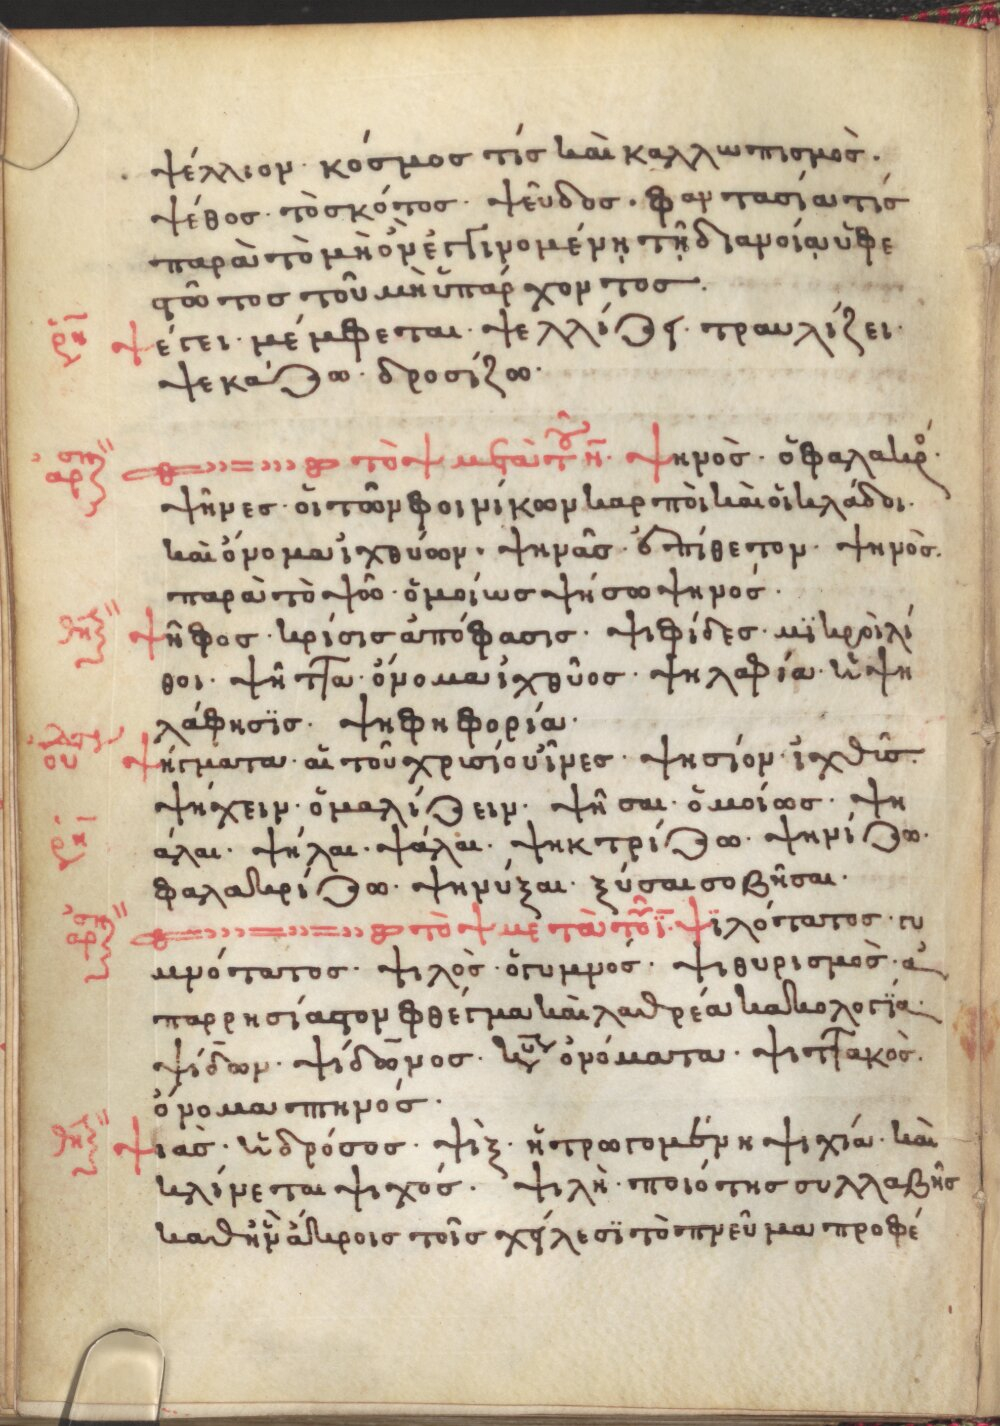 ψέλλιον· κόσμος τίς καὶ καλλωπισμὸς.
ψέθος· τὸ σκότος· ψεῦδος· φαντασία τίς
παρὰ τὸ μὴ ὂν ἐγγινομένη τῇ διανοίᾳ ὑφε
στῶτος τοῦ μὴ ὑπάρχοντος.
ψέγει· μέμφεται· ψελλίζει· τραυλίζει·
ψεκάζω· δροσίζω·
τὸ ψ μετὰ τοῦ η· ψηνὸς· ὁ φαλακρός·
ψῆνες· οἱ τῶν φοινίκων καρποὶ καὶ οἱ κλάδοι·
καὶ ὄνομα ἰχθύων· ψηνᾶς· ἐπίθετον· ψηνὸς.
παρὰ τὸ ψῶ· ὁμοίως ψήσω ψηνός·
ψῆφος· κρίσις ἀπόφασις· ψιφίδες· μϊκροὶ λί
θοι· ψῆττα· ὄνομα ἰχθῦος· ψηλαφία· ἡ ψη
λάφησϊς· ψηφηφορία·
ψήγματα· αἱ τοῦ χρισίου ἶνες· ψησίον· ἰχθῦς·
ψήχειν· ὁμαλίζειν· ψῆσαι· ὁμοίως· ψη
άλαι· ψήλαι· ψάλαι· ψηκτρίζω· ψηνίζω·
φαλακρίζω· ψηνύξαι· ξύσαι σοβῆσαι·
τὸ ψ μετὰ τοῦ ϊ· ψϊλότατος· γυ
μνότατος· ψιλὸς· ὁ γυμνός· ψιθυρισμὸς· ἀ
παρρησίαστον φθέγμα καὶ λαθρέα κακολογία·
ψίδων· ψίδωνος· κύρια ὀνόματα· ψιττακὸς·
ὄνομα πτηνός·
ψιὰς· ἡ δρόσος· ψὶξ· ἡ τρωγομένη ψιχία· καὶ
κλίνεται ψιχός· ψιλὴ· ποιότης συλλαβῆς
καθ' ἣν ἄκροις τοῖς χείλεσϊ τὸ πνεῦμα προφέ